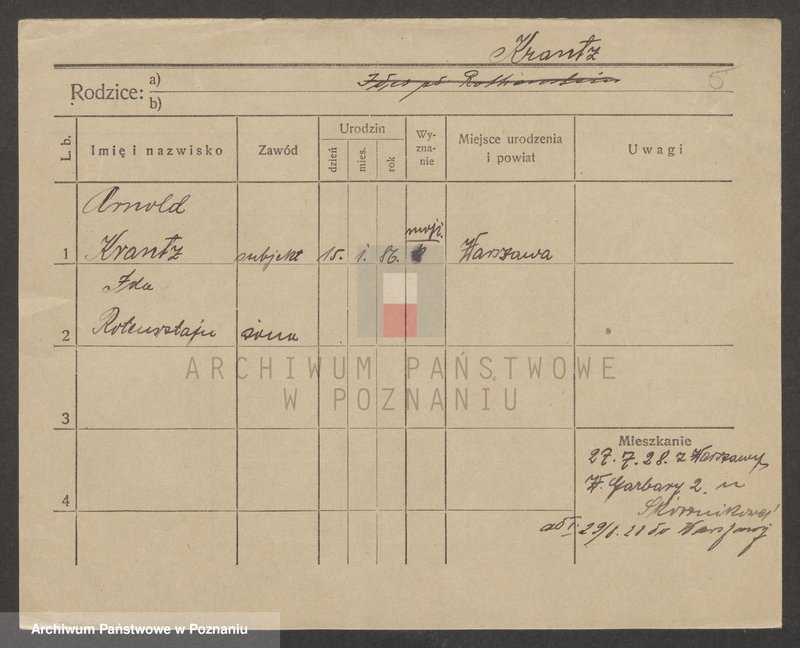 Krantz
Rodzice: a)
b)
5
L. b.
Imię i nazwisko
Zawód
Urodzin
dzień
mies.
rok
Wy-
zna-
nie
Miejsce urodzenia
i powiat
Uwagi
Arnold
mojż.
1 Krantz subjekt 15. 1. 86. Warszawa
Ida
2 Rotensztajn żona
ARCHIWUM PAŃSTWOWE
W POZNANIU
3
Mieszkanie
27.7.28. z Warszawy
4
W. Garbary 2. u
Skórnikowej
29/8. 28 do Warszawy
Archiwum Państwowe w Poznaniu